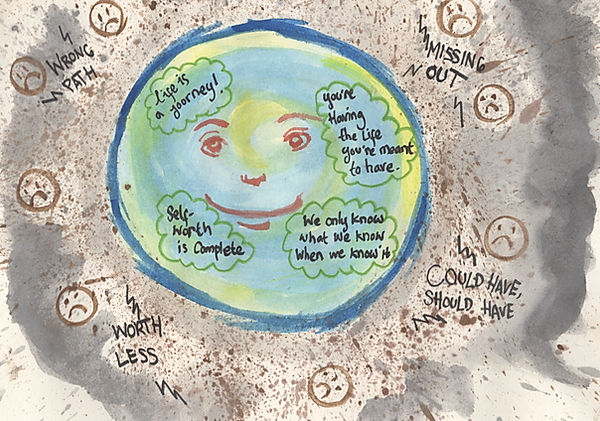 WRONG
PATH
MISSING
OUT
Life is
a journey!
you're
Having
the Life
you're meant
to have.
Self-
Worth
is Complete
We only know
what we know
when we know it
COULD HAVE,
SHOULD HAVE
WORTH
LESS